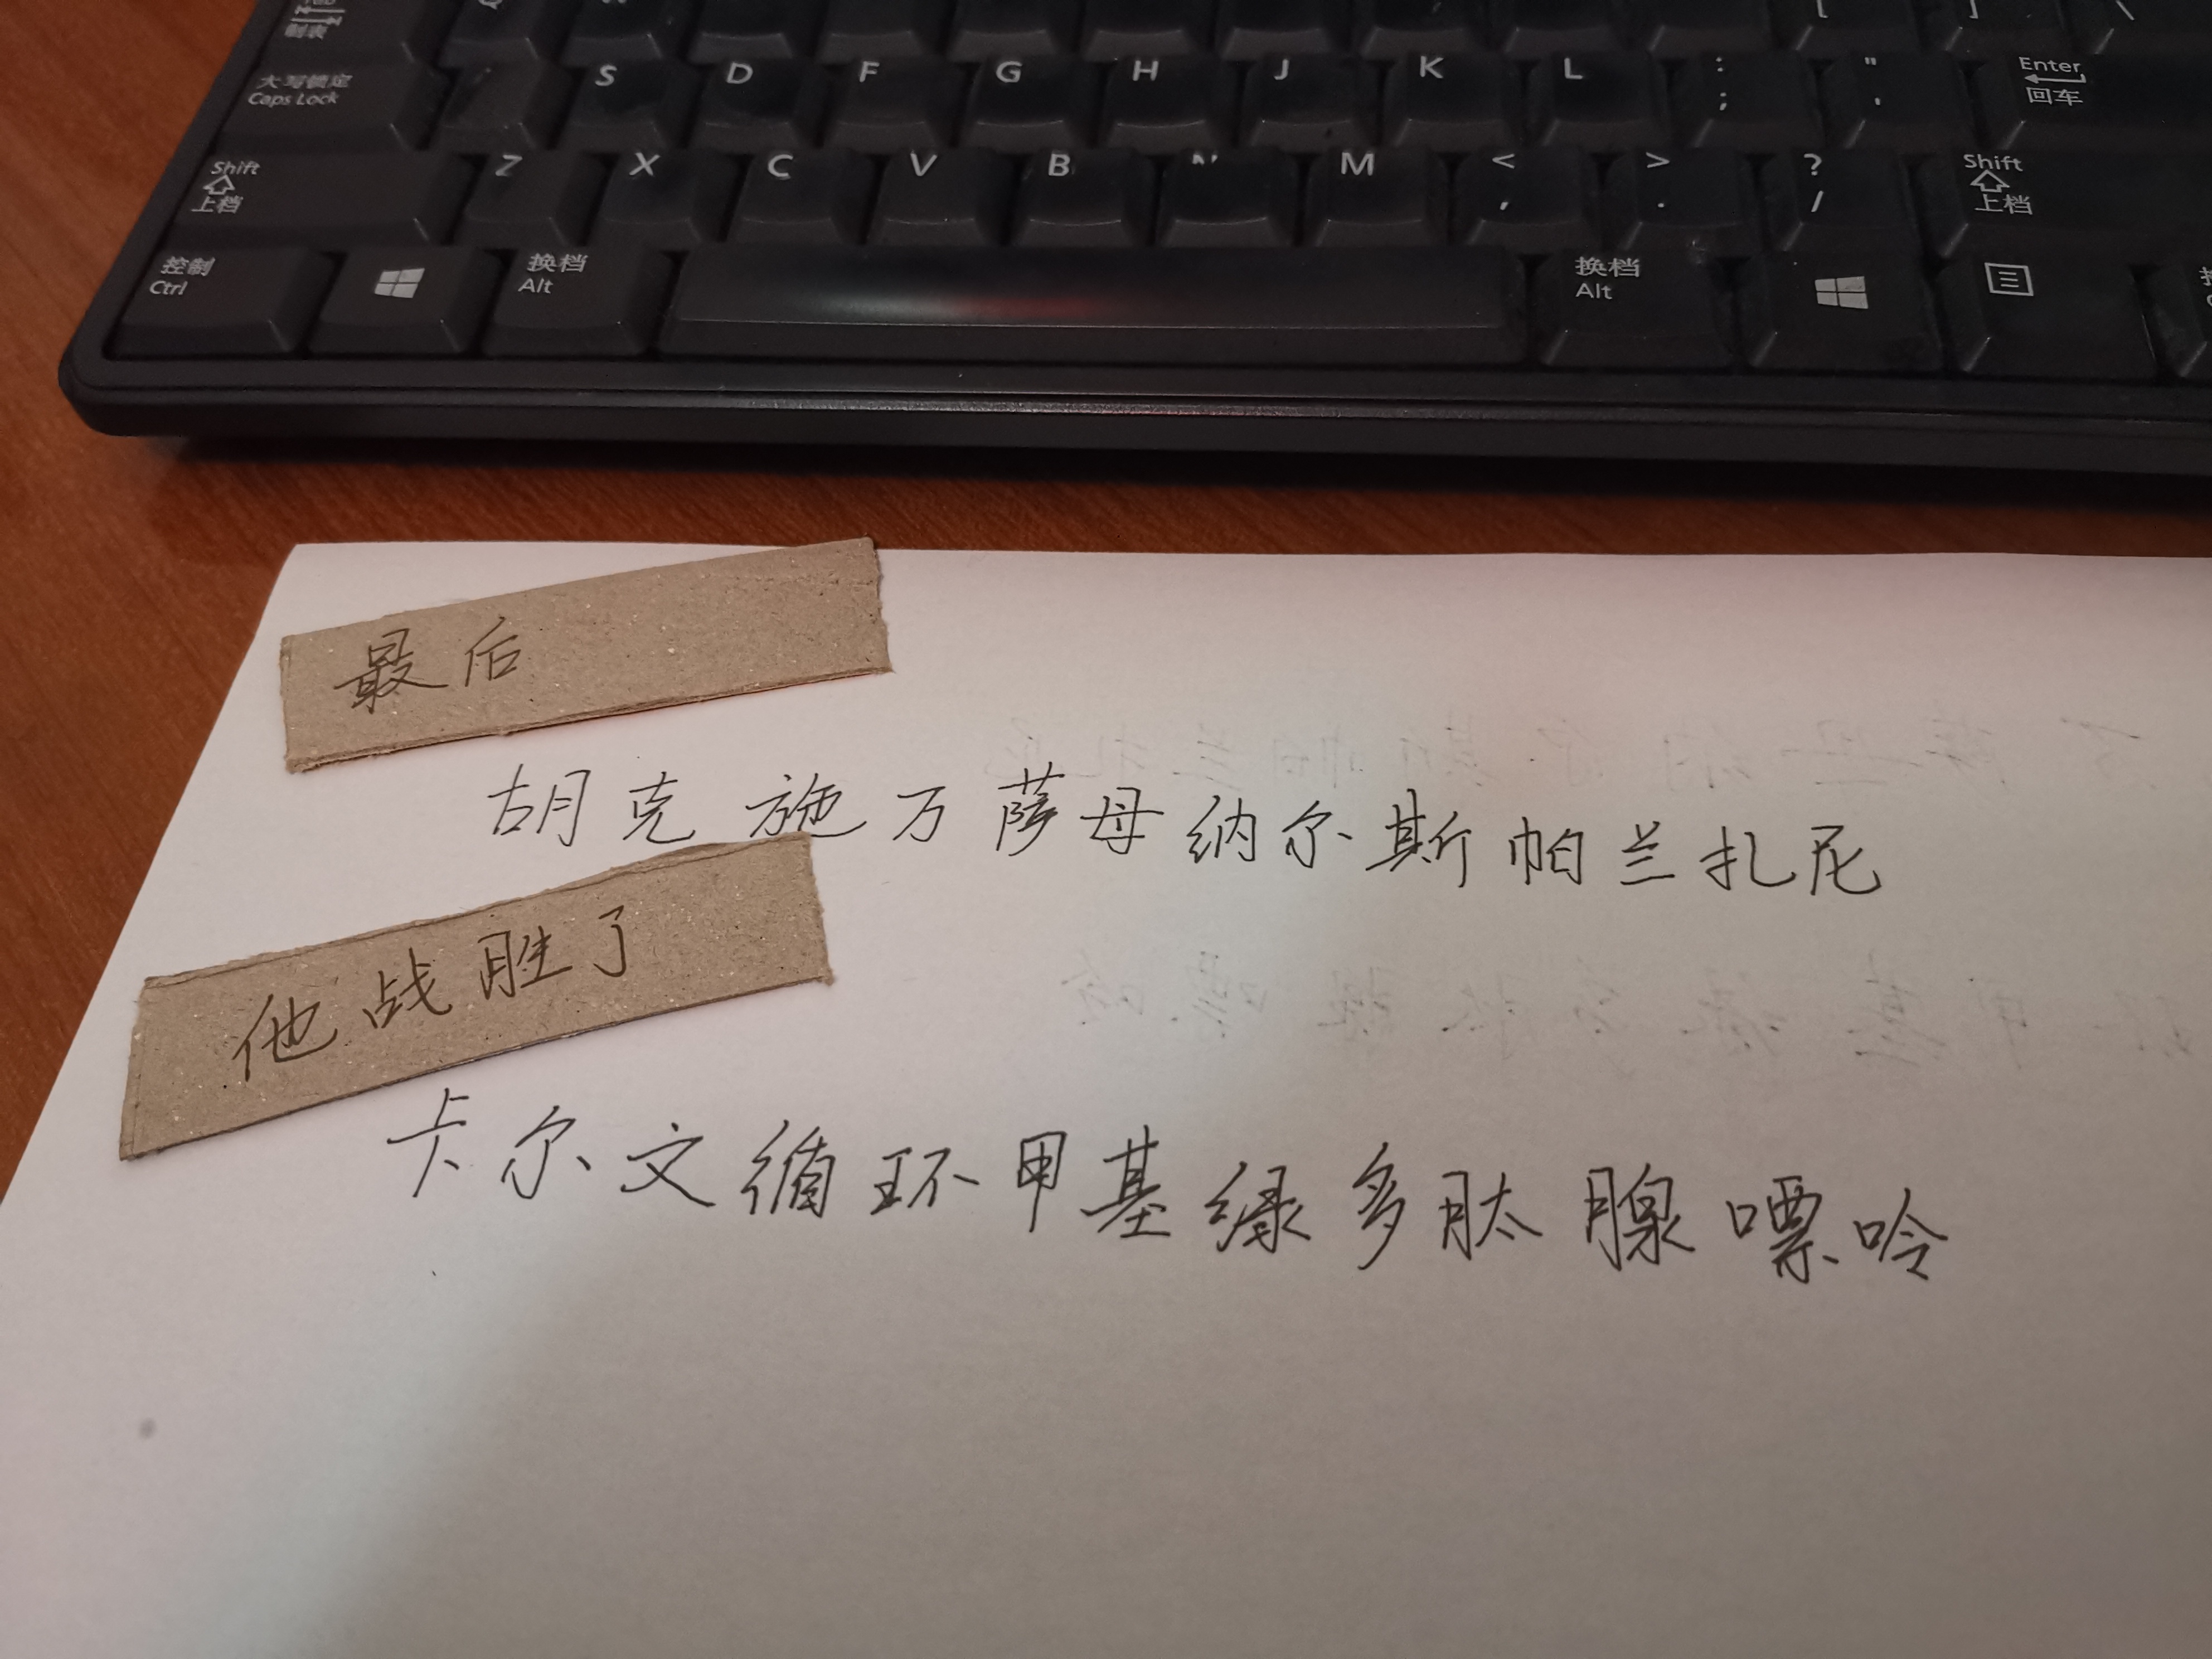 制表
Q
[
]
\
大写锁定
Caps Lock
S D F G H J K L : ; " '
Enter
回车
Shift
上档
Z X C V B N M < , > . ? /
Shift
上档
控制
Ctrl
换档
Alt
换档
Alt
最后
胡克施万萨母纳尔斯帕兰扎尼
他战胜了
卡尔文循环甲基绿多肽腺嘌呤